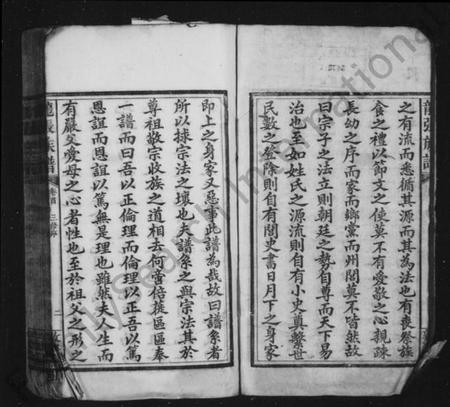 之有流而悉循其源而其為法也有喪祭族
食之禮以節文之使莫不有愛敬之心親疎
長幼之序而家而鄉黨而州閭莫不皆然故
曰宗子之法立則朝廷之勢自尊而天下易
治也至如姓氏之源流則自有小史奠繫世
民數之登除則自有閭史書日月下之身家
即上之身家又惡事此譜為哉故曰譜系者
所以捄宗法之壞也夫譜系之與宗法其於
尊祖敬宗收族之道相去何啻倍蓰區區奉
一譜而曰吾以正倫理而倫理以正吾以篤
恩誼而恩誼以篤無是理也雖然夫人生而
有嚴父愛母之心者性也至於祖父之形之
龍張族譜
二
My Search International